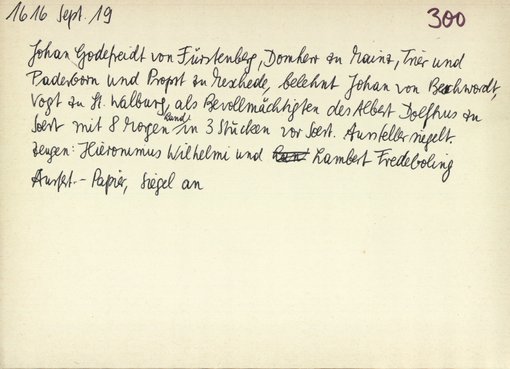 1616 Sept. 19
300
Johan Godefreidt von Fürstenberg, Domherr zu Mainz, Trier und
Paderborn und Propst zu Meschede, belehnt Johan von Bockwordt,
Vogt zu St. Walburg, als Bevollmächtigten des Albert Dolfhus zu
Soest mit 8 Morgen Land in 3 Stücken vor Soest. Aussteller siegelt.
Zeugen: Hieronimus Wilhelmi und Lambert Fredeboling
Ausfert. - Papier, Siegel an